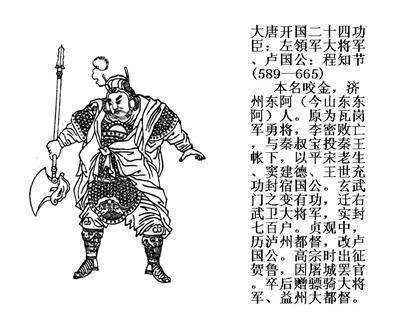 大唐开国二十四功
臣：左領軍大将军
、卢国公：程知节
(589—665)
本名咬金，济
州东阿（今山东东
阿）人。原为瓦岗
军勇将，李密败亡
，与秦叔宝投秦王
帐下，以平宋老生
、窦建德、王世充
功封宿国公。玄武
门之变有功，迁右
武卫大将军，实封
七百户。贞观中，
历泸州都督，改卢
国公。高宗时出征
贺鲁，因屠城罢官
。卒后赠骠骑大将
军、益州大都督。